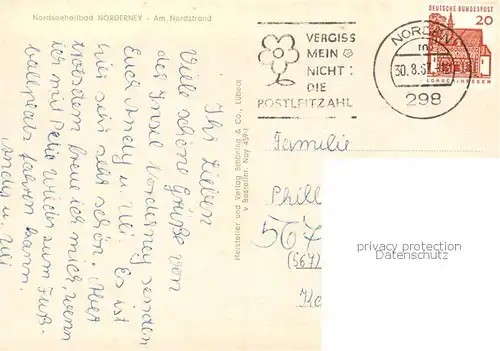 Nordseeheilbad NORDERNEY - Am Nordstrand
Ihr Lieben
Viele schöne Grüße von
der Insel Norderney senden
Euch Andy u. Uli. Es ist
hier sehr schön. Aber
trotzdem freue ich mich, wenn
ich mit Peter wieder zum Fuß-
ballplatz fahren kann.
Andy u. Uli
Hersteller und Verlag Schöning & Co., Lübeck
VERGISS
MEIN
NICHT:
DIE
POSTLEITZAHL
NORDEN
30.8.
298
DEUTSCHE BUNDESPOST
20
LORSCH/HESSEN
Familie
Phill
567
(567)
privacy protection
Datenschutz